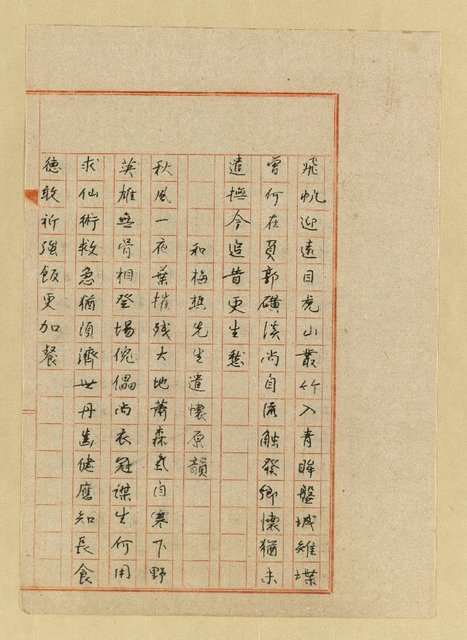 飛帆迎遠目虎山叢竹入青眸盤城雉堞
曾何在負郭磺淡尚自流触發鄉懷猶未
遣撫今追昔更生愁
和梅樵先生遣懷原韻
秋風一夜葉摧殘大地蕭森氣自寒下野
英雄無骨相登場傀儡尚衣冠謀生何用
求仙術救急猶須濟世丹齒健應知長食
德敢祈強飯更加餐